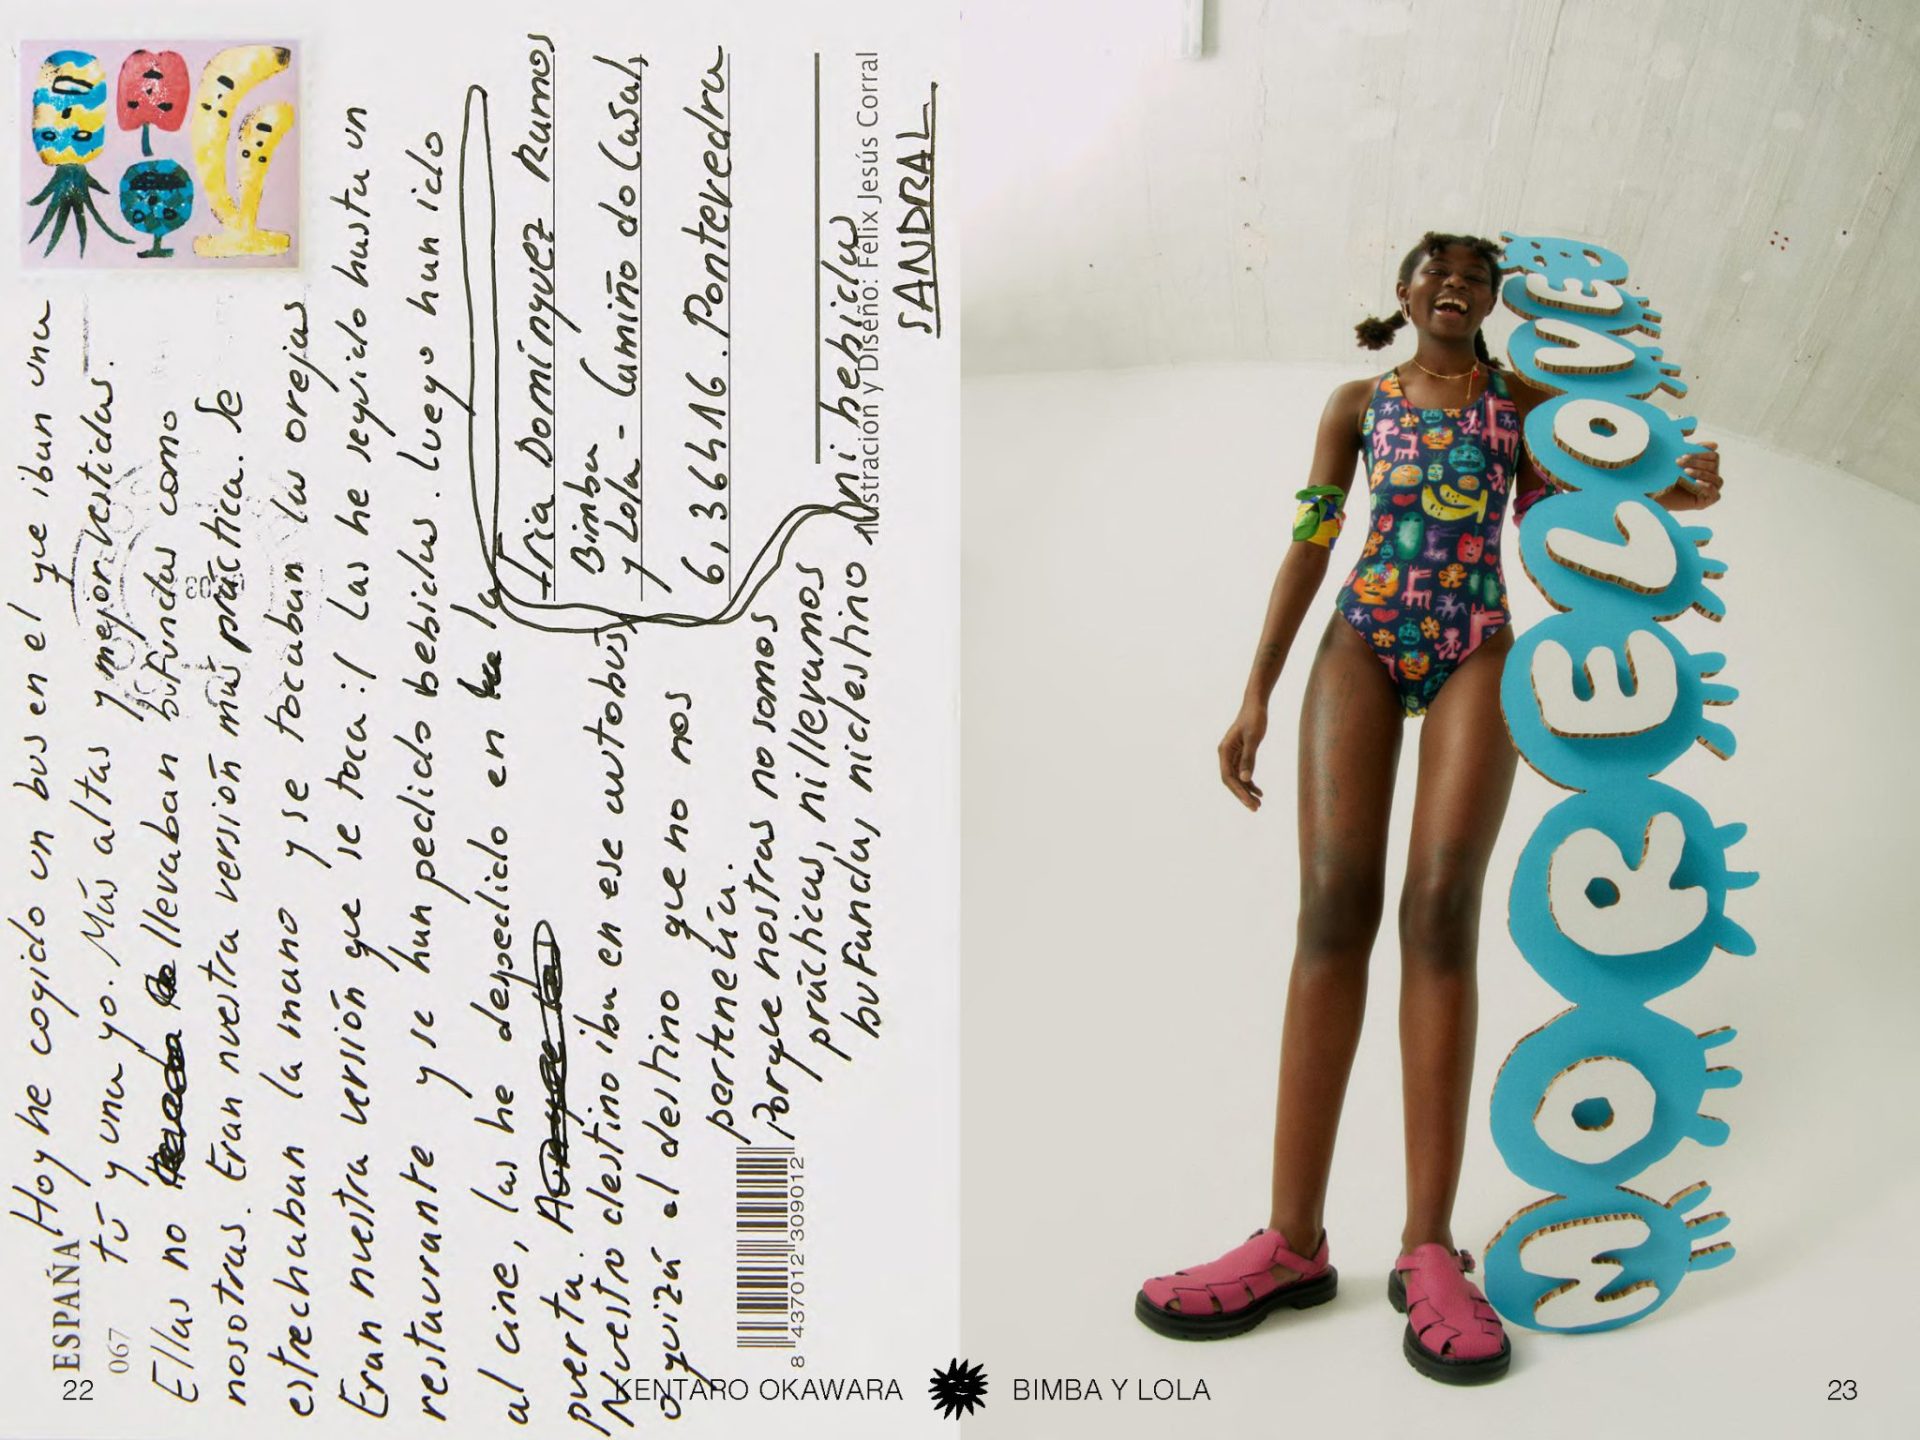 Hoy he cogido un bus en el que iban una
tú y una yo. Más altas y mejor vestidas.
Ellas no llevaban bufandas como
nosotras. Eran nuestra versión más práctica. Se
estrechaban la mano y se tocaban las orejas
Eran nuestra versión que se toca :/ Las he seguido hasta un
restaurante y se han pedido bebidas. Luego han ido
al cine, las he despedido en la
puerta.
Nuestro destino iba en ese autobús,
o quizá el destino que no nos
pertenecía.
Porque nostras no somos
práchicas, ni llevamos
bufanda, ni destino ni bebidas
SANDRAL
ESPAÑA
067
Domínguez Ramos
Bimba
y Lola - Camiño do Casal,
6, 36416. Pontevedra
Ilustración y Diseño: Félix Jesús Corral
8 437012 309012
22
KENTARO OKAWARA
BIMBA Y LOLA
23
MORELOVE